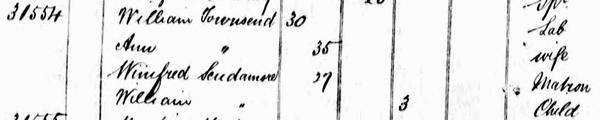 31554 William Townsend 30 Lab
Ann " 35 wife
Winifred Scudamore 27 Matron
William " 3 Child
31555